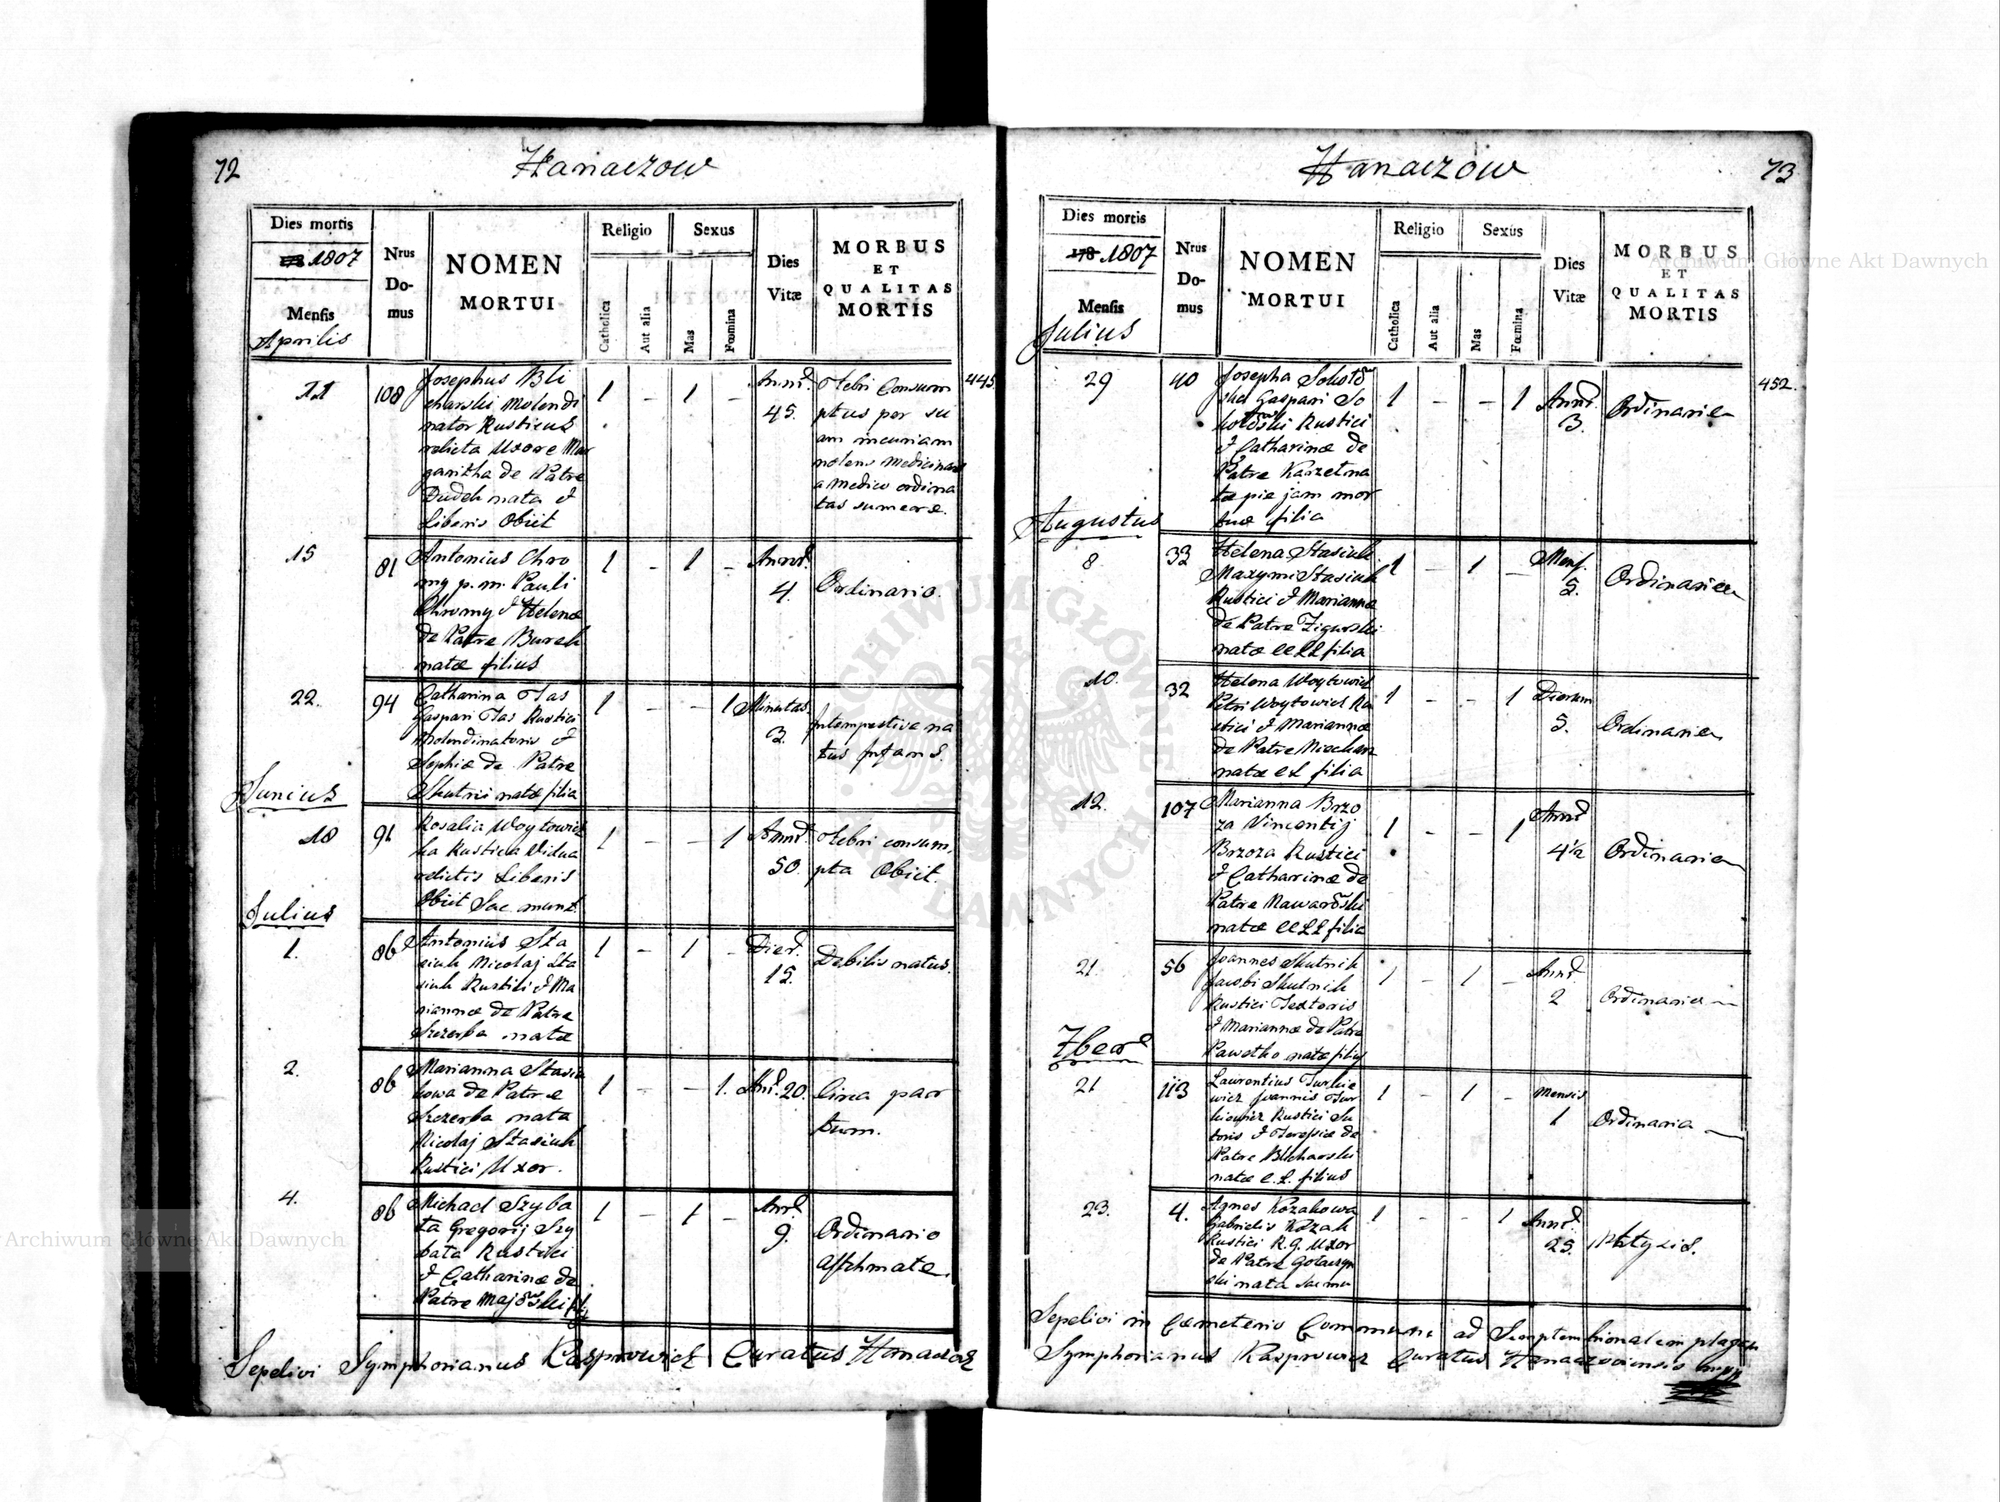 72
Hanaczow
Dies mortis
1807
Mensis
Aprilis
Nrus
Do-
mus
NOMEN
MORTUI
Religio
Catholica
Aut alia
Sexus
Mas
Fœmina
Dies
Vitæ
MORBUS
ET
QUALITAS
MORTIS
11
108
Josephus Bli
charski Molendi
nator Rusticus
relicta Uxore Mar
garitha de Patre
Dudek nata &
Liberis Obiit
1
–
1
–
Annor.
45.
Febri Consum
ptus per su
am incuriam
nolens Medicinas
a Medico ordina
tas sumere.
445.
15
81
Antonius Chro
my p. m. Pauli
Chromy & Helenæ
de Patre Burek
natæ filius
1
–
1
–
Annor.
4.
Ordinario.
22.
94
Catharina
Gaspari Rustici
Molendinatoris &
Sophiæ de Patre
Skutnik natæ filia
1
–
–
1
Minutas
3.
Intempestive na
tus Infans.
Junius
18
91
Rosalia Woytowicz
ka Rustica Vidua
relictis Liberis
Obiit Sac. munit.
1
–
–
1
Annor.
50.
Febri consum,
pta Obiit.
Julius
1.
86
Antonius Sta
siuk Nicolaj Sta
siuk Rustici & Ma
riannæ de Patre
Szczerba natæ
1
–
1
–
Dier.
15.
Debilis natus.
2.
86
Marianna Stasiu
kowa de Patre
Szczerba nata
Nicolaj Stasiuk
Rustici Uxor.
1
–
–
1.
An. 20.
Circa par
tum.
4.
86
Michael Szyba
ta Gregorij Szy
bata Rustici
& Catharinæ de
Patre Majowski
1
–
1
–
Anor.
9.
Ordinario
Asthmate.
Sepelivi Symphorianus Kasprowicz Curatus Hanaczow
73
Hanaczow
Dies mortis
178 1807
Mensis
Julius
Nrus
Do-
mus
NOMEN
MORTUI
Religio
Catholica
Aut alia
Sexus
Mas
Fœmina
Dies
Vitæ
MORBUS
ET
QUALITAS
MORTIS
29
40
Josepha Sokolow
ska Gaspari So
kolowski Rustici
& Catharinæ de
Patre Karzet na
tæ pie jam mor
tuæ filia
1
–
–
1
Annor.
3.
Ordinaria
452.
Augustus
8
33
Helena Stasiuk
Maxymi Stasiuk
Rustici & Mariannæ
de Patre
natæ CCLL filia
1
–
1
–
Mens.
5.
Ordinaria
10.
32
Helena Woytowicz
Petri Woytowicz Ru
stici & Mariannæ
de Patre
natæ CL filia
1
–
–
1
Dierum
5.
Ordinaria
12.
107
Marianna Brzo
za Vincentij
Brzoza Rustici
& Catharinæ de
Patre Nawarowski
natæ CCLL filia
1
–
–
1
Annor.
4½
Ordinaria
21.
56
Joannes Skutnik
Jacobi Skutnik
Rustici Textoris
& Mariannæ de Patre
Pawelko natæ filius
1
–
1
–
Annor.
2
Ordinaria
7bear.
21
113
Laurentius Turkie
wicz Joannis Tur
kiewicz Rustici Su
toris & Teresiæ de
Patre Blicharski
natæ C. L. filius
1
–
1
–
Mensis
1
Ordinaria
23.
4.
Agnes Kozakowa
Gabrielis Kozak
Rustici R. G. Uxor
de Patre
ski nata Sac mu
1
–
–
1
Annor.
25.
Phtysis.
Sepelivi in Cœmeterio Communi ad Semptemtrionalem plagam
Symphorianus Kasprowicz Curatus Hanaczoviensis mpp
ARCHIWUM GŁÓWNE AKT DAWNYCH
Archiwum Główne Akt Dawnych
Archiwum Główne Akt Dawnych